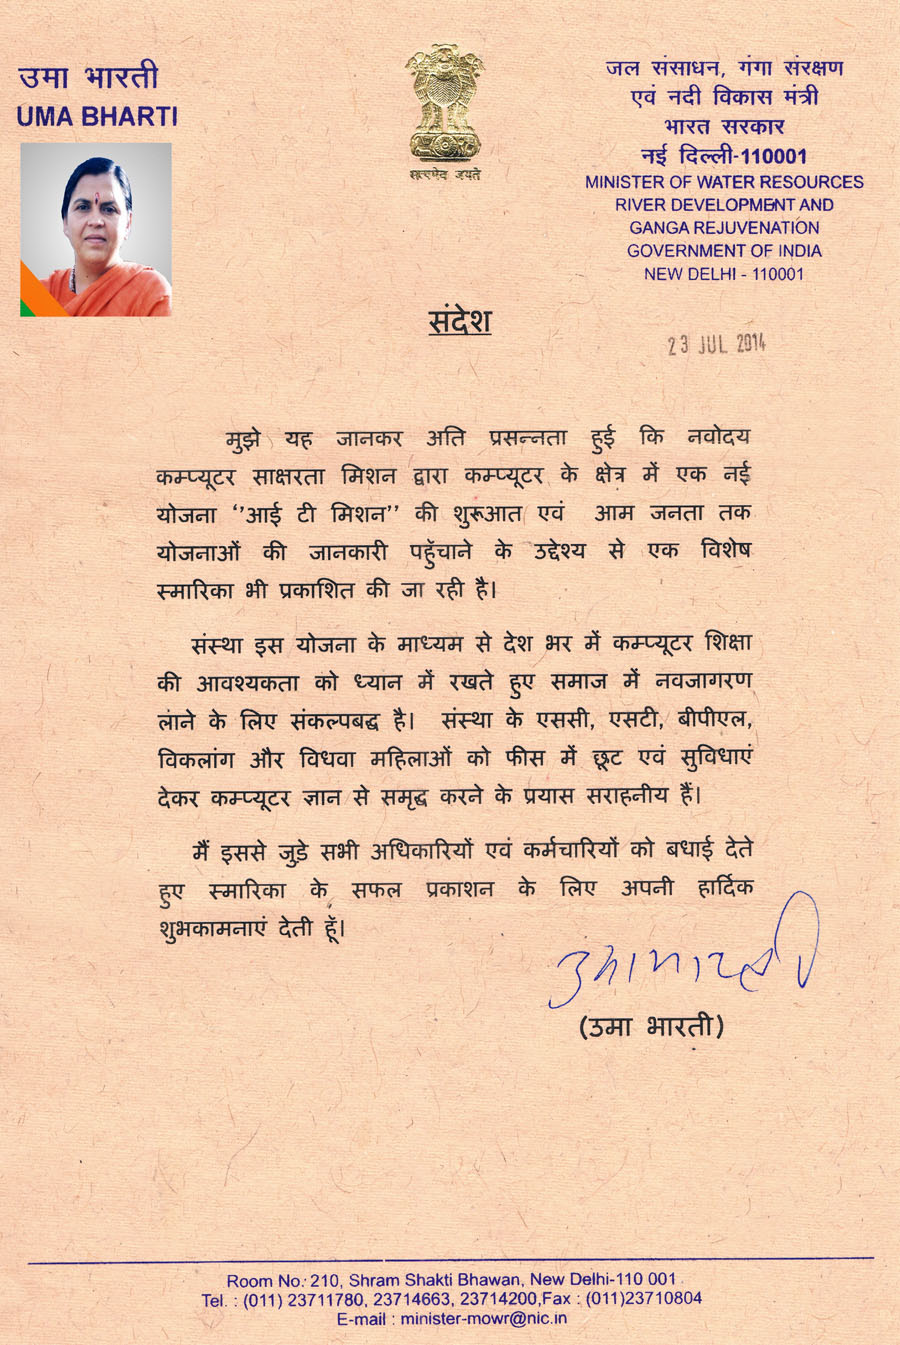 उमा भारती
UMA BHARTI
सत्यमेव जयते
जल संसाधन, गंगा संरक्षण
एवं नदी विकास मंत्री
भारत सरकार
नई दिल्ली-110001
MINISTER OF WATER RESOURCES
RIVER DEVELOPMENT AND
GANGA REJUVENATION
GOVERNMENT OF INDIA
NEW DELHI - 110001
संदेश
23 JUL 2014
मुझे यह जानकर अति प्रसन्नता हुई कि नवोदय
कम्प्यूटर साक्षरता मिशन द्वारा कम्प्यूटर के क्षेत्र में एक नई
योजना ‘’आई टी मिशन’’ की शुरूआत एवं आम जनता तक
योजनाओं की जानकारी पहुँचाने के उद्देश्य से एक विशेष
स्मारिका भी प्रकाशित की जा रही है।
संस्था इस योजना के माध्यम से देश भर में कम्प्यूटर शिक्षा
की आवश्यकता को ध्यान में रखते हुए समाज में नवजागरण
लाने के लिए संकल्पबद्ध है। संस्था के एससी, एसटी, बीपीएल,
विकलांग और विधवा महिलाओं को फीस में छूट एवं सुविधाएं
देकर कम्प्यूटर ज्ञान से समृद्ध करने के प्रयास सराहनीय हैं।
मैं इससे जुड़े सभी अधिकारियों एवं कर्मचारियों को बधाई देते
हुए स्मारिका के सफल प्रकाशन के लिए अपनी हार्दिक
शुभकामनाएं देती हूँ।
उमा भारती
(उमा भारती)
Room No. 210, Shram Shakti Bhawan, New Delhi-110 001
Tel. : (011) 23711780, 23714663, 23714200,Fax : (011)23710804
E-mail : minister-mowr@nic.in